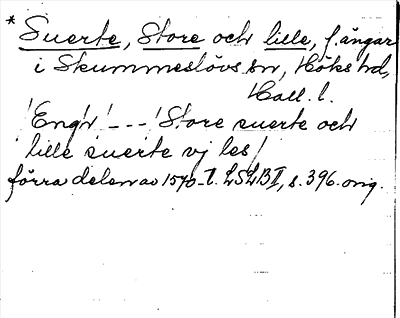 * Suerte, Store och lille, f. ängar
i Skummeslövs sn, Höks hd,
Hall. l.
'Engr' --- 'Store suerte och
lille suerte vj les'
förra delen av 1570-t. LSLB II, s. 396. orig.